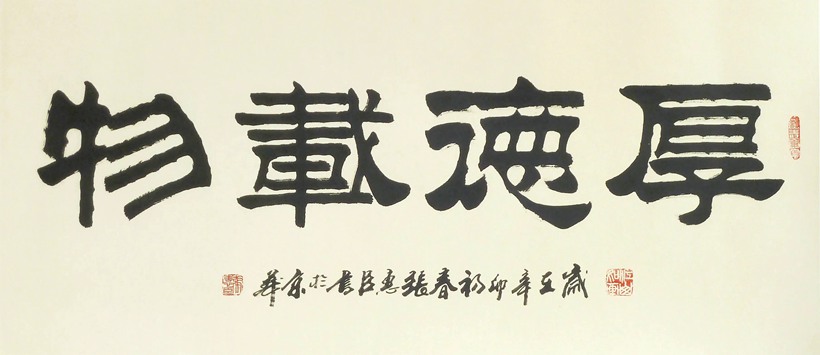 厚德載物
歲在辛卯初春張惠臣書於京華